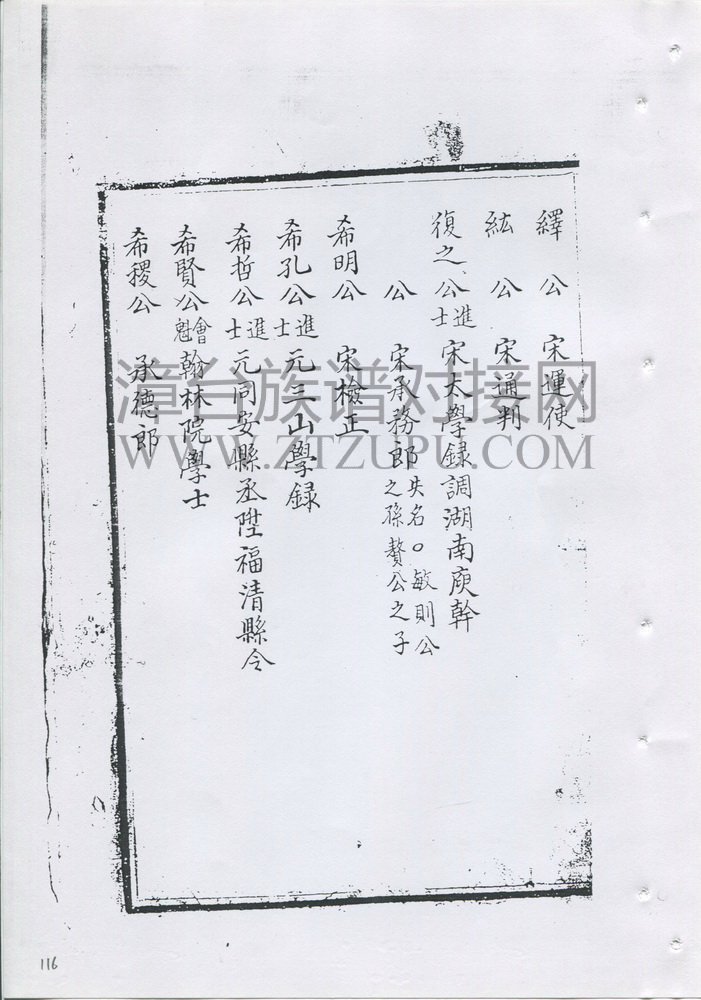 繹公 宋運使
紘公 宋通判
復之公 進士 宋太學録調湖南庾幹
公 宋承務郎 失名○敏則公之孫贅公之子
希明公 宋檢正
希孔公 進士 元三山學録
希哲公 進士 元同安縣丞陞福清縣令
希賢公 會魁 翰林院學士
希稷公 承德郎
漳台族谱对接网
WWW.ZTZUPU.COM
116